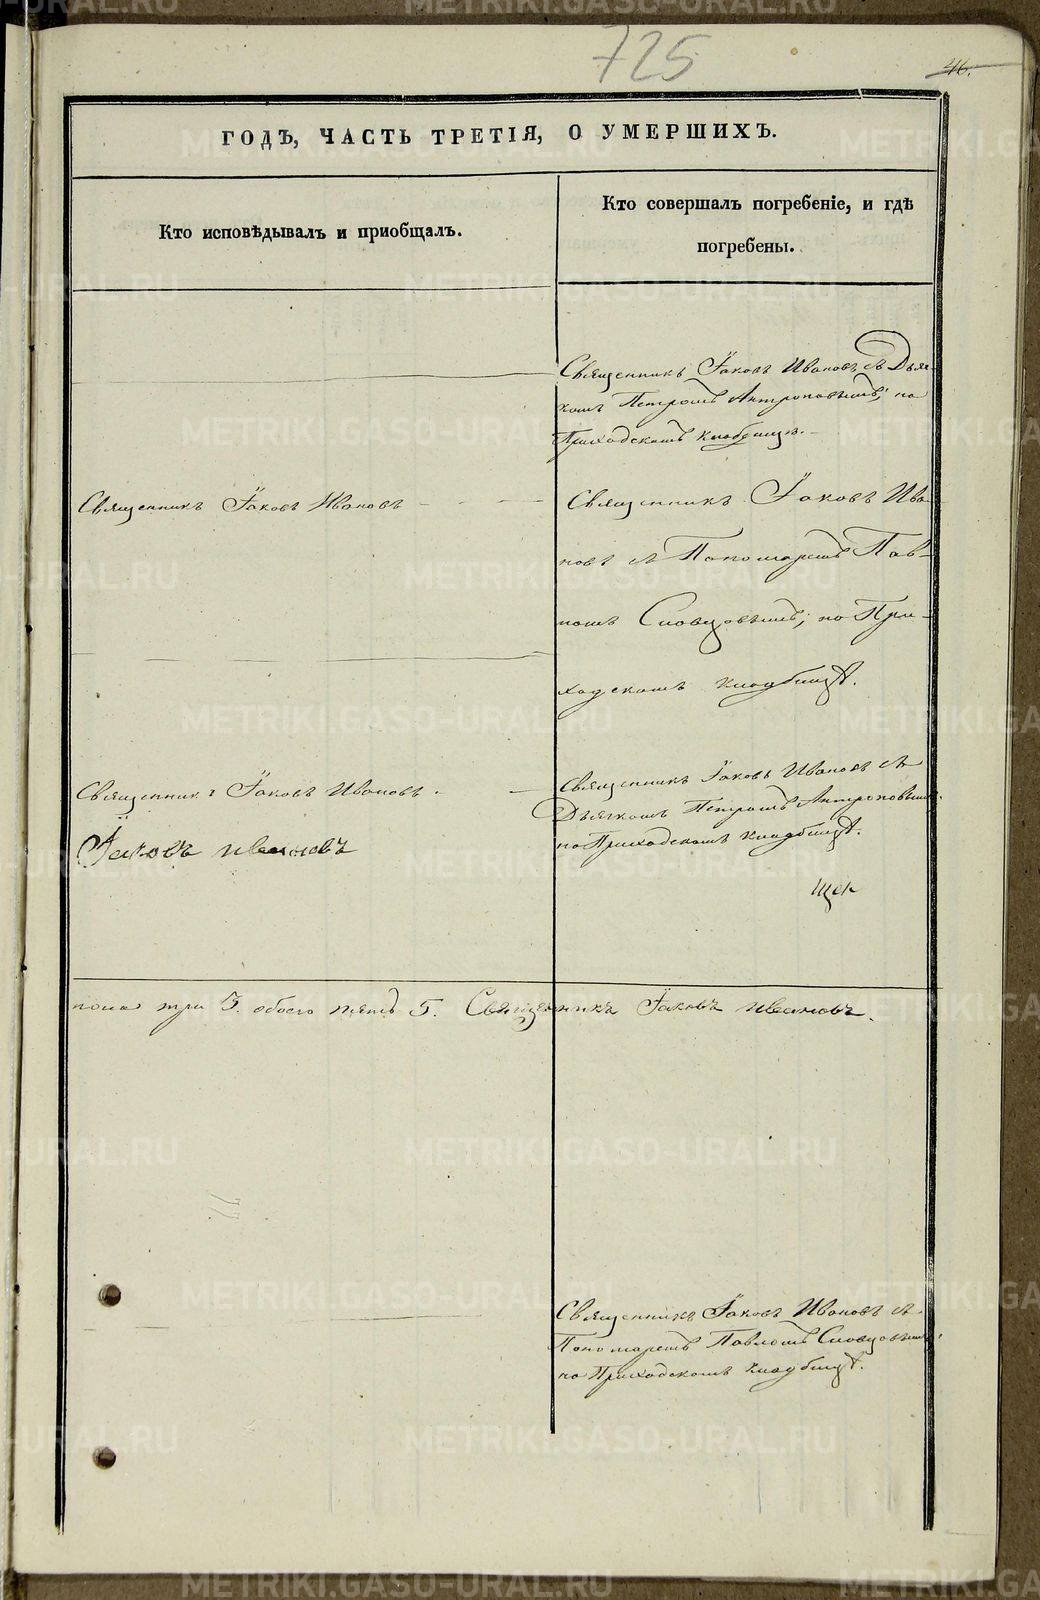 725
46.
ГОДЪ, ЧАСТЬ ТРЕТІЯ, О УМЕРШИХЪ.
Кто исповѣдывалъ и приобщалъ.
Кто совершалъ погребеніе, и гдѣ
погребены.
Священникъ Їаковъ Ивановъ съ Дьяч-
комъ Петромъ Антроповымъ; на
Приходскомъ кладбищѣ.
Священникъ Їаковъ Ивановъ
Священникъ Їаковъ Ива-
новъ съ Пономаремъ Пав-
ломъ Словцовымъ; на При-
ходскомъ кладбищѣ.
Священникъ Їаковъ Ивановъ.
Їаковъ Ивановъ
Священникъ Їаковъ Ивановъ съ
Дьячкомъ Петромъ Антроповымъ.
на Приходскомъ кладбищѣ.
пола три 3. обоего пять 5. Священникъ Їаковъ Ивановъ.
Священникъ Їаковъ Ивановъ съ
Пономаремъ Павломъ Словцовымъ;
на Приходскомъ кладбищѣ.
METRIKI.GASO-URAL.RU